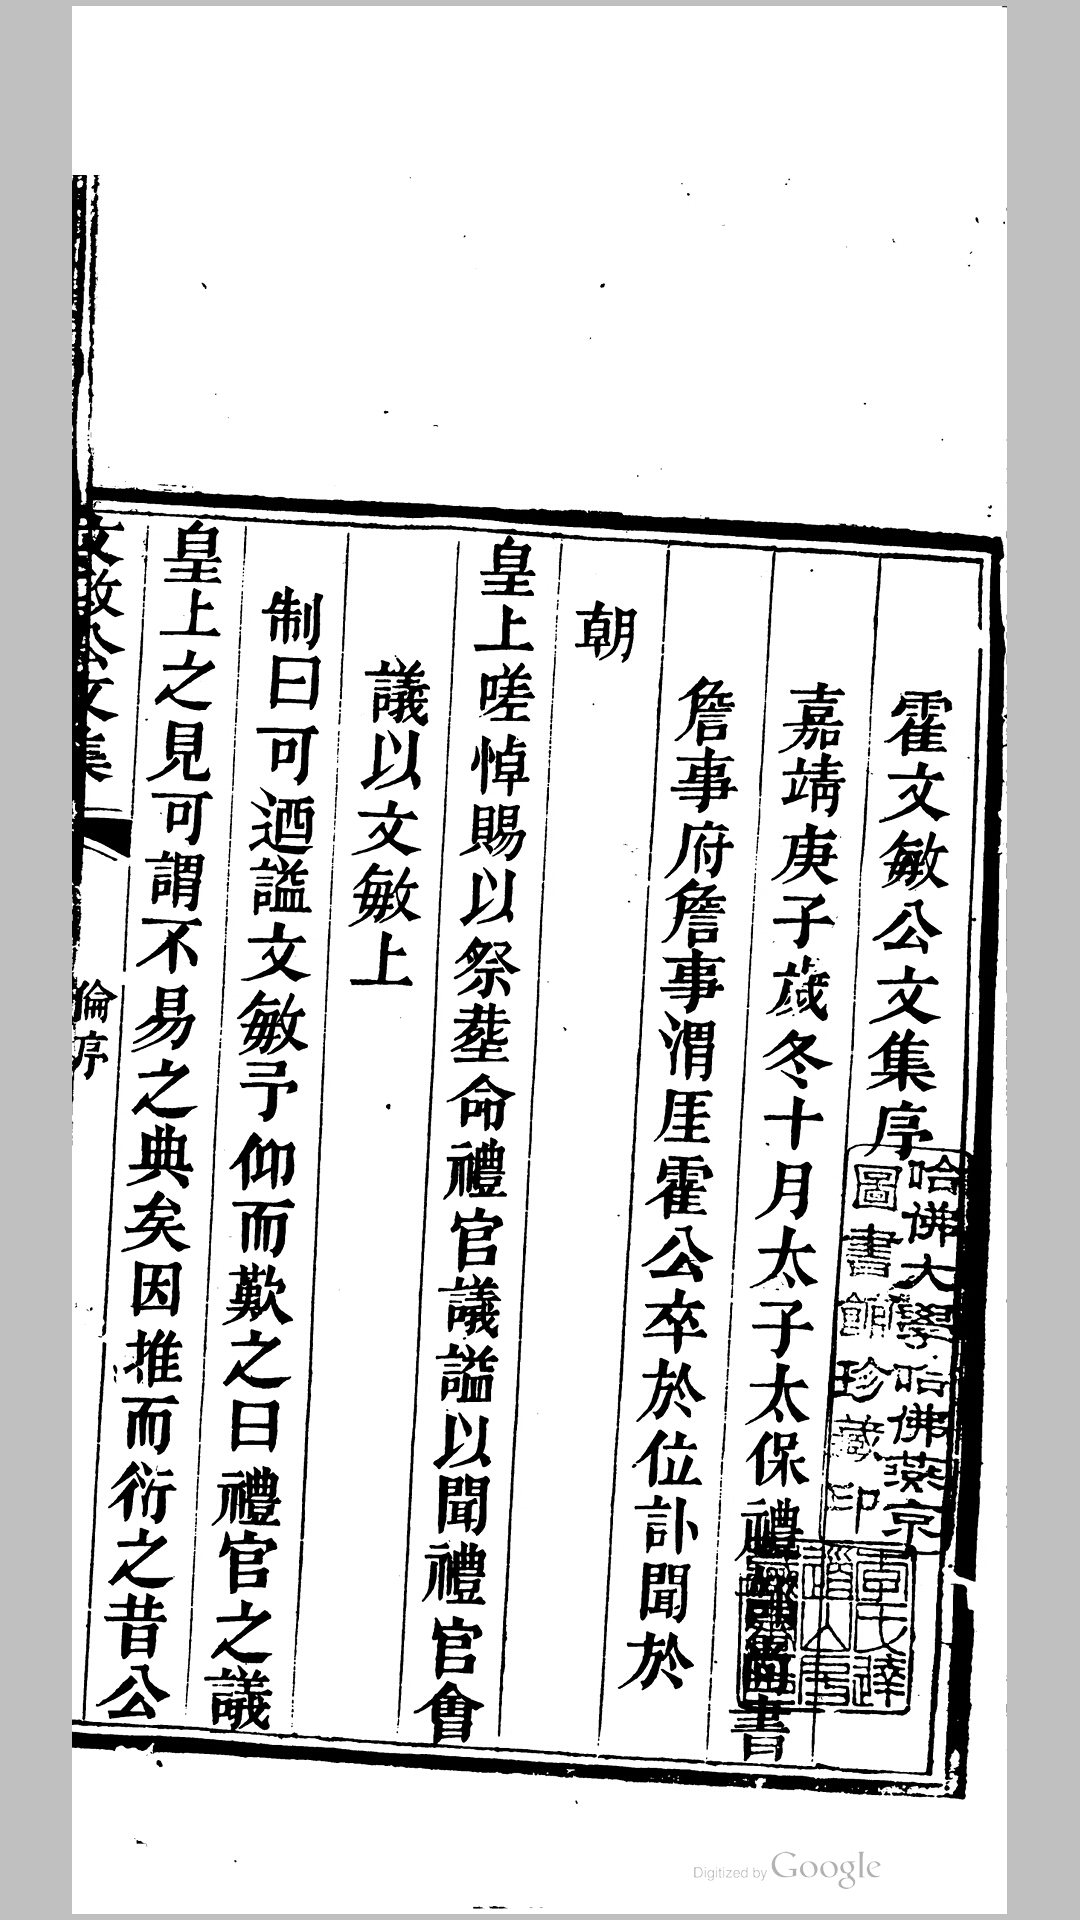 霍文敏公文集序
嘉靖庚子歲冬十月太子太保禮部尚書
詹事府詹事渭厓霍公卒於位訃聞於
朝
皇上嗟悼賜以祭塟命禮官議謚以聞禮官會
議以文敏上
制曰可迺謚文敏予仰而歎之曰禮官之議
皇上之見可謂不易之典矣因推而衍之昔公
文敏公文集
倫序
哈佛大學哈佛燕京
圖書館珍藏印
Digitized by Google